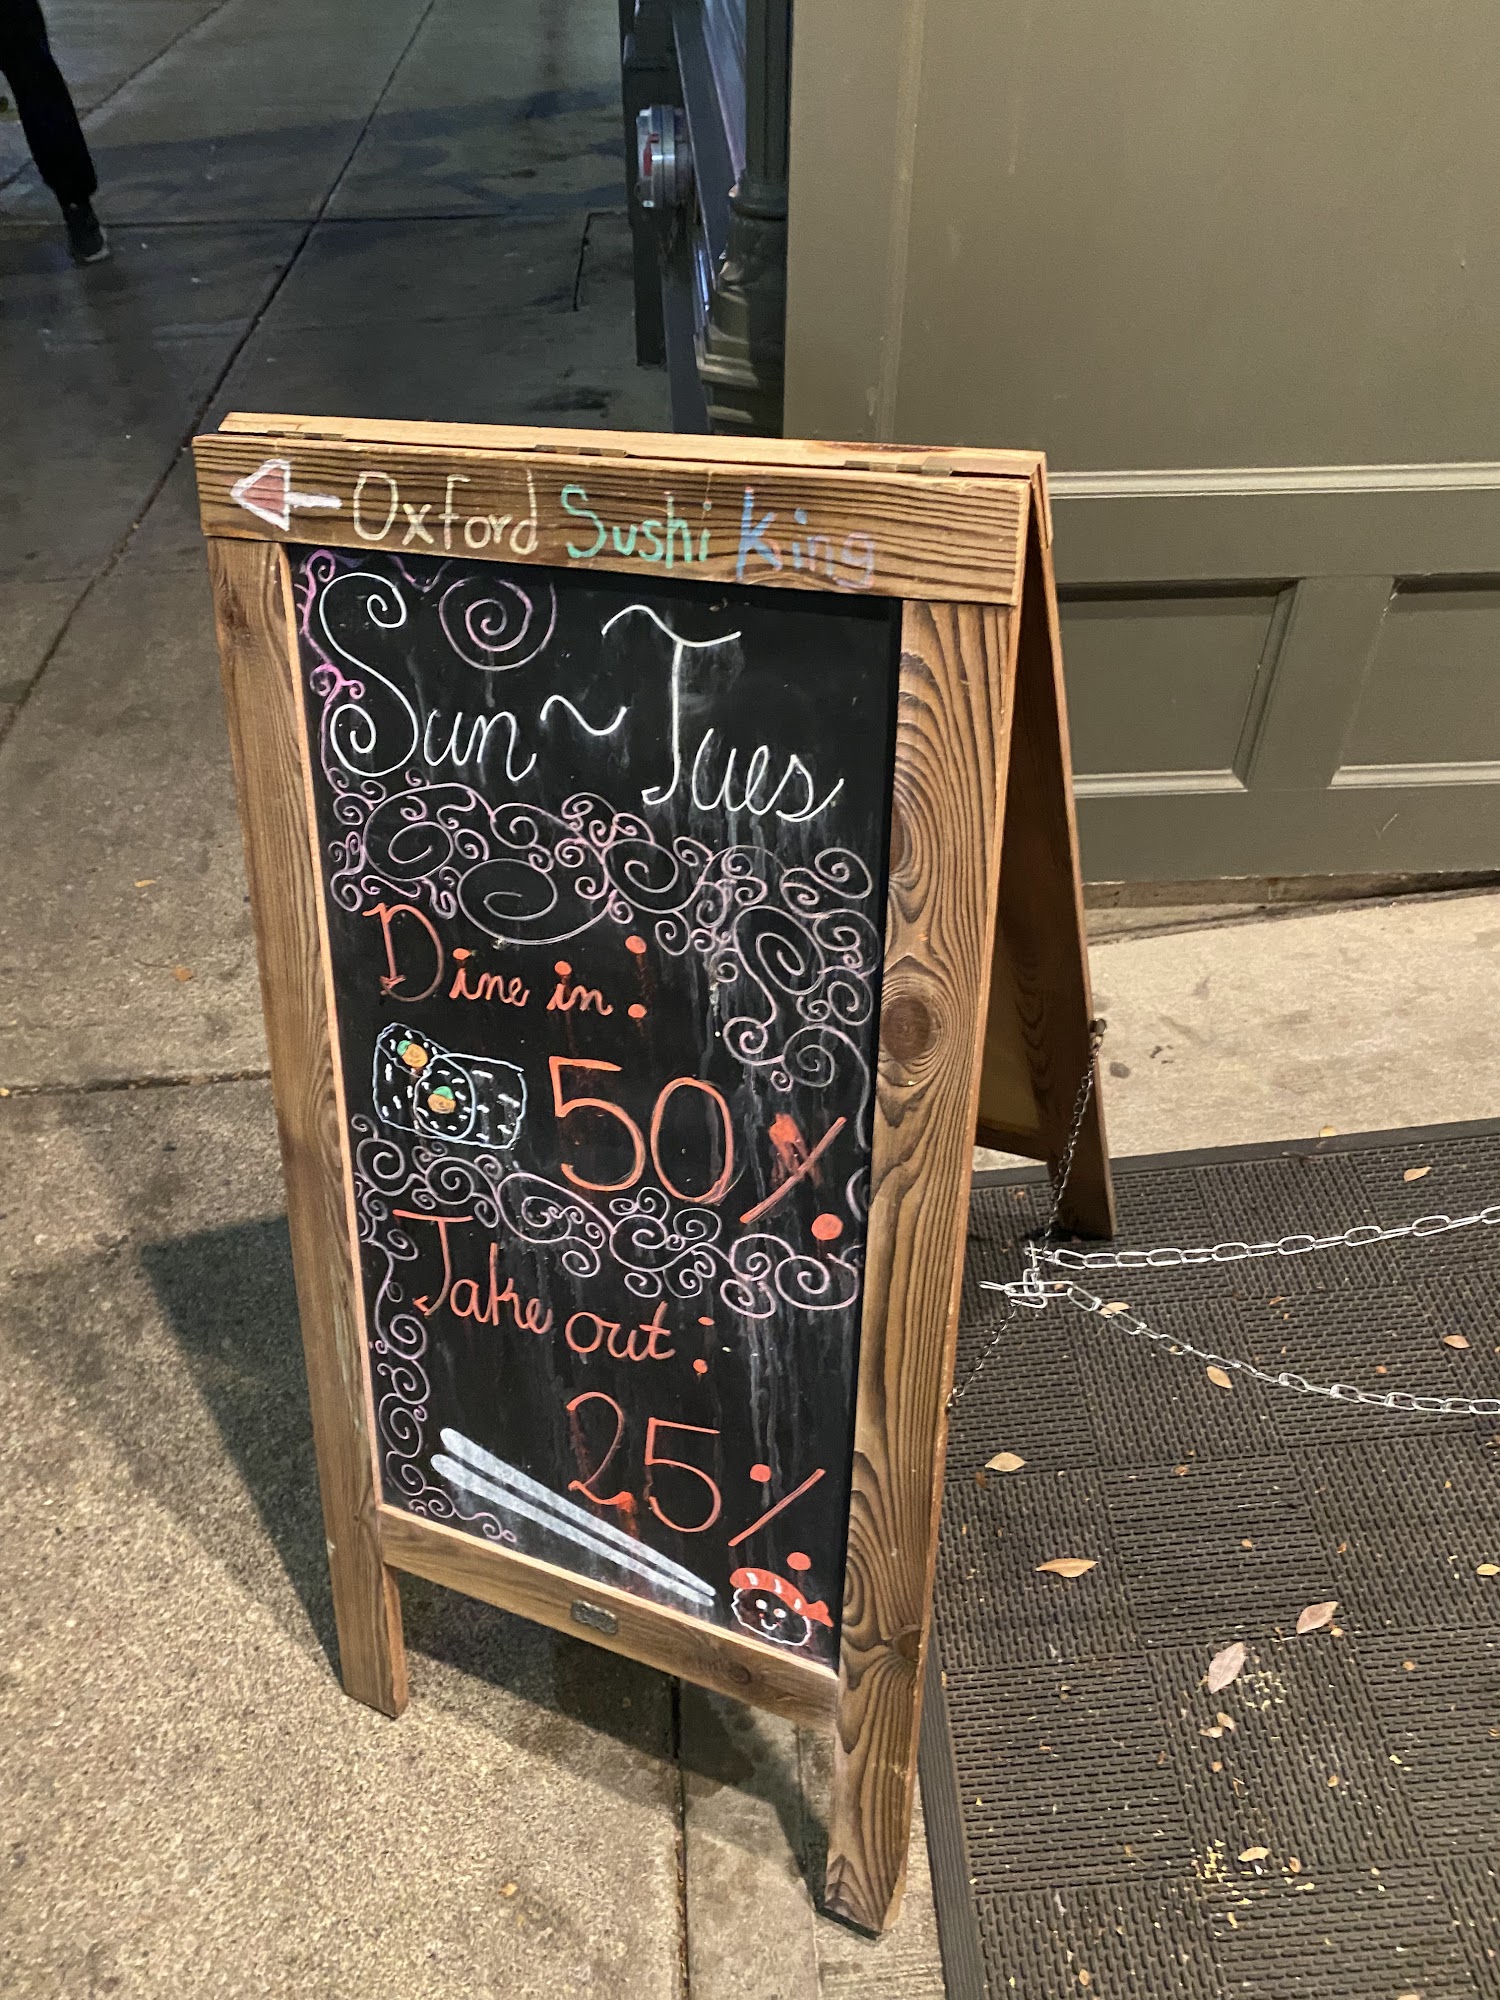 Oxford Sushi King
Sun ~ Tues
Dine in:
50%
Take out:
25%